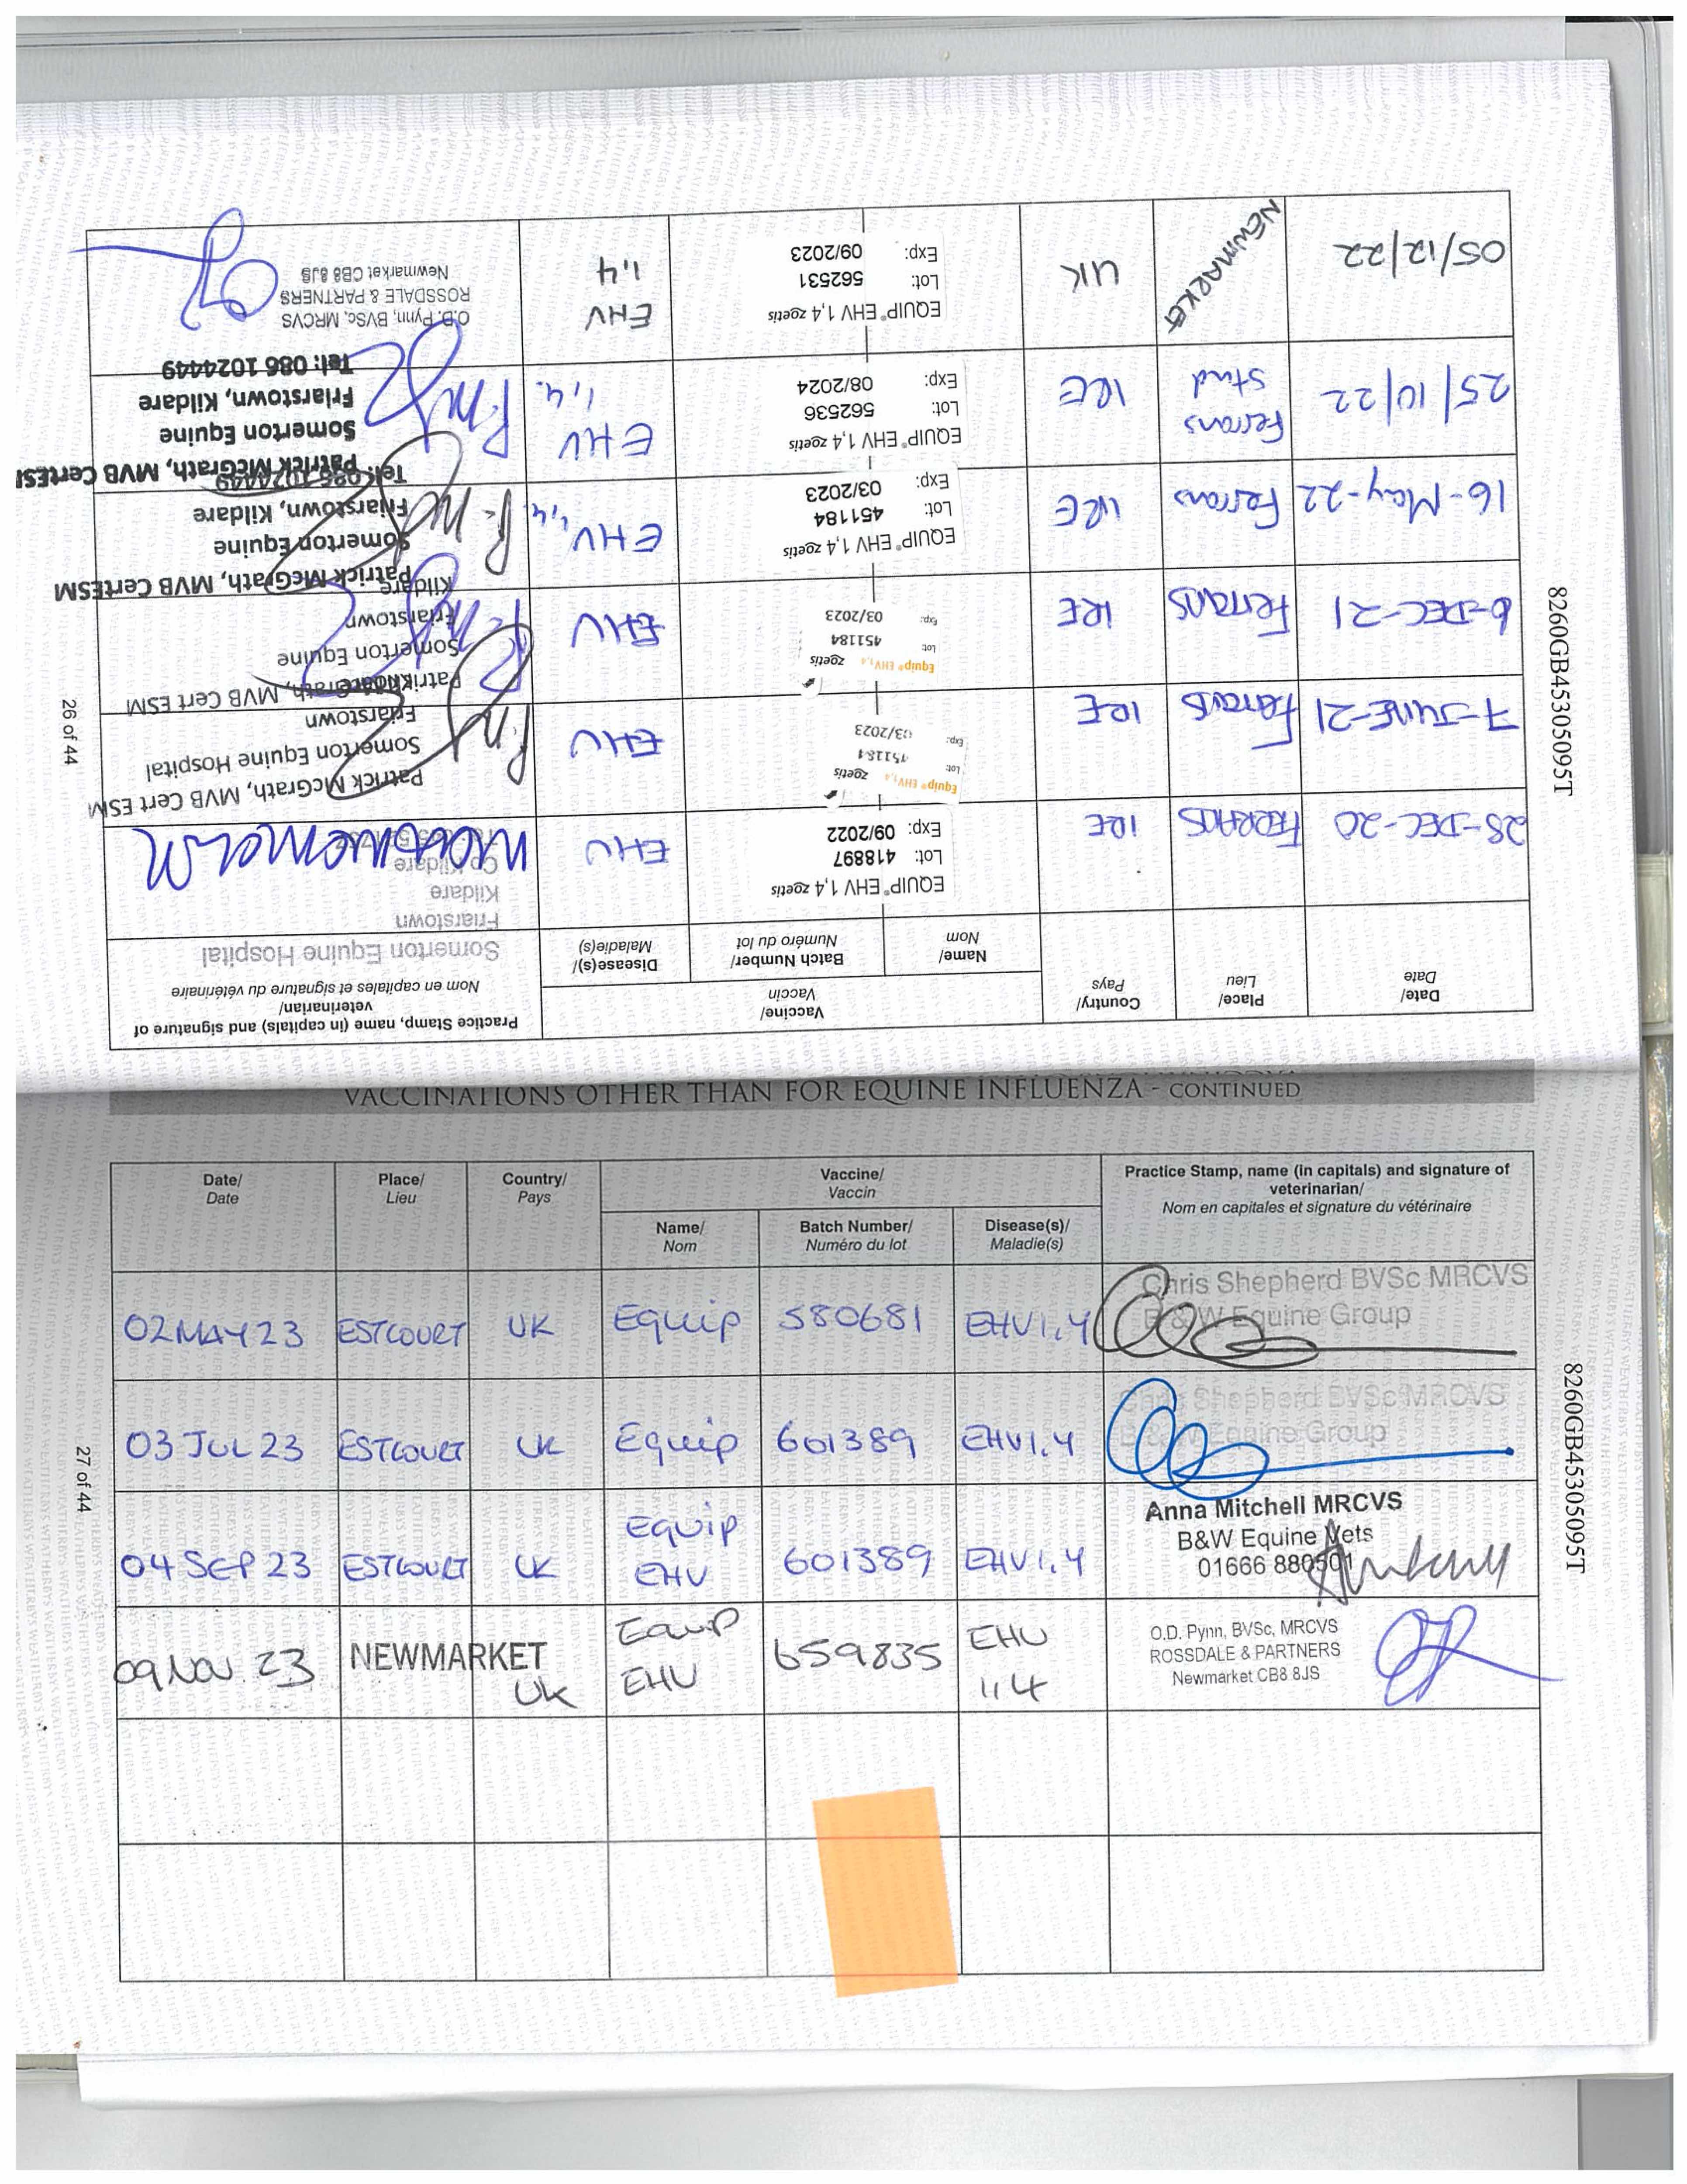 26 of 44
8260GB45305095T
Date/
Date
Place/
Lieu
Country/
Pays
Vaccine/
Vaccin
Name/
Nom
Batch Number/
Numéro du lot
Disease(s)/
Maladie(s)
Practice Stamp, name (in capitals) and signature of
veterinarian/
Nom en capitales et signature du vétérinaire
28-DEC-20
FERRANS
IRE
EQUIP® EHV 1,4 zoetis
Lot: 418897
Exp: 09/2022
EHV
Somerton Equine Hospital
Friarstown
Kildare
Co Kildare
7-JUNE-21
Ferrans
IRE
Equip® EHV 1,4 zoetis
Lot: 451184
Exp: 03/2023
EHV
Patrick McGrath, MVB Cert ESM
Somerton Equine Hospital
Friarstown
Kildare
6-DEC-21
Ferrans
IRE
Equip® EHV 1,4 zoetis
Lot: 451184
Exp: 03/2023
EHV
Patrick McGrath, MVB Cert ESM
Somerton Equine
Friarstown
Kildare
16-May-22
Ferrans
IRE
EQUIP® EHV 1,4 zoetis
Lot: 451184
Exp: 03/2023
EHV 1,4.
Patrick McGrath, MVB CertESM
Somerton Equine
Friarstown, Kildare
Tel: 086 1024449
25/10/22
Ferrans
Stud
IRE
EQUIP® EHV 1,4 zoetis
Lot: 562536
Exp: 08/2024
EHV
1,4.
Patrick McGrath, MVB CertES
Somerton Equine
Friarstown, Kildare
Tel: 086 1024449
05/12/22
NEWMARKET
UK
EQUIP® EHV 1,4 zoetis
Lot: 562531
Exp: 09/2023
EHV
1,4
O.D. Pynn, BVSc, MRCVS
ROSSDALE & PARTNERS
Newmarket CB8 8JS
VACCINATIONS OTHER THAN FOR EQUINE INFLUENZA - CONTINUED
Date/
Date
Place/
Lieu
Country/
Pays
Vaccine/
Vaccin
Name/
Nom
Batch Number/
Numéro du lot
Disease(s)/
Maladie(s)
Practice Stamp, name (in capitals) and signature of
veterinarian/
Nom en capitales et signature du vétérinaire
02 MAY 23
ESTCOURT
UK
Equip
580681
EHV1,4
Chris Shepherd BVSc MRCVS
B & W Equine Group
03 JUL 23
ESTCOURT
UK
Equip
601389
EHV1,4
Chris Shepherd BVSc MRCVS
B & W Equine Group
04 SEP 23
ESTCOURT
UK
Equip
EHV
601389
EHV1,4
Anna Mitchell MRCVS
B&W Equine Vets
01666 880501
09 NOV 23
NEWMARKET
UK
Equip
EHV
659835
EHV
1,4
O.D. Pynn, BVSc, MRCVS
ROSSDALE & PARTNERS
Newmarket CB8 8JS
27 of 44
8260GB45305095T